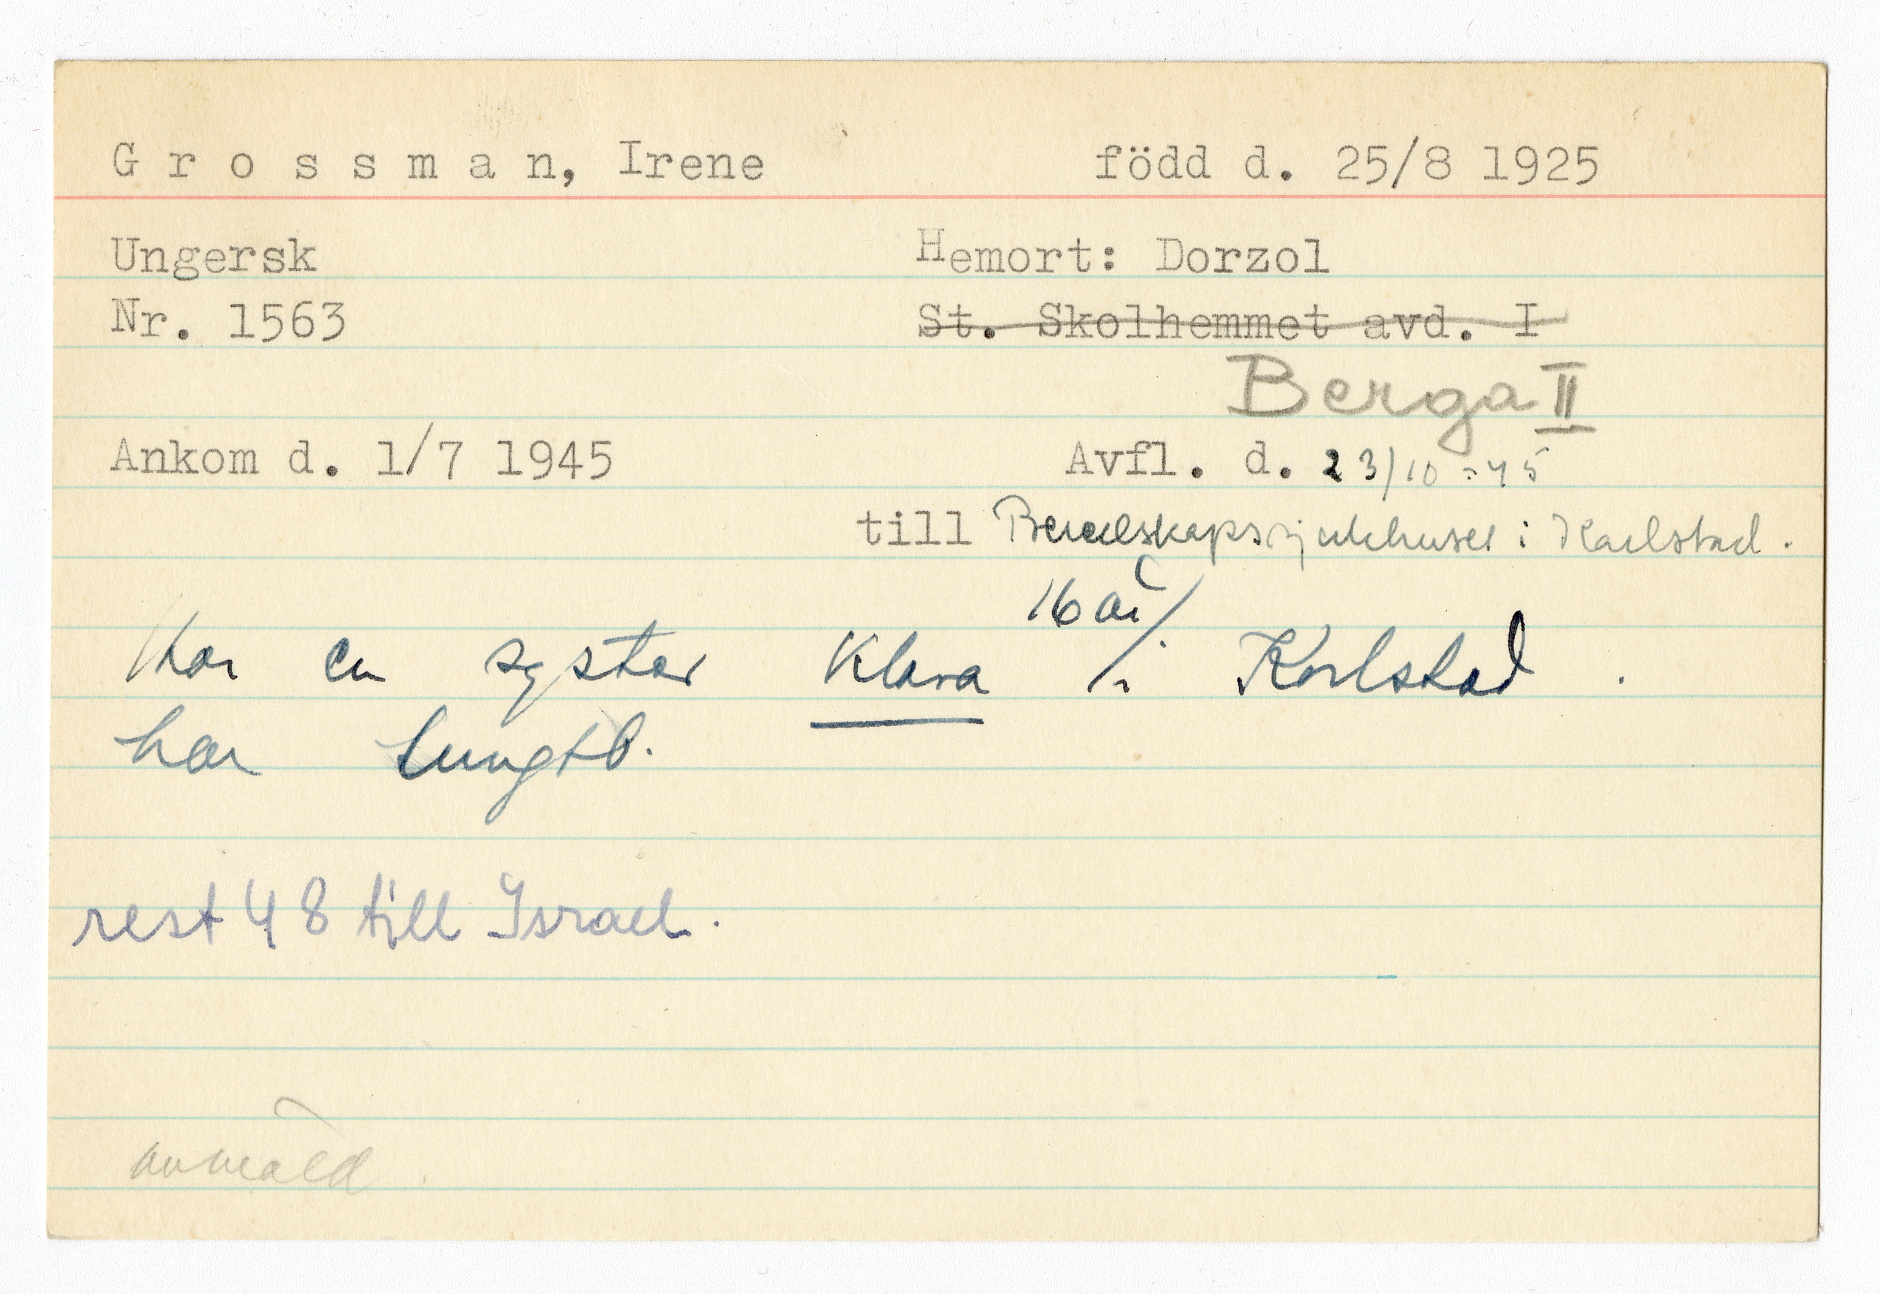 Grossman, Irene född d. 25/8 1925
Ungersk Hemort: Dorzol
Nr. 1563 St. Skolhemmet avd. I
Berga II
Ankom d. 1/7 1945 Avfl. d. 23/10 -45
till Beredskapssjukhuset i Karlstad.
16 år
Har en syster Klara / i Karlstad.
har lungtb.
rest 48 till Israel.
anmäld.